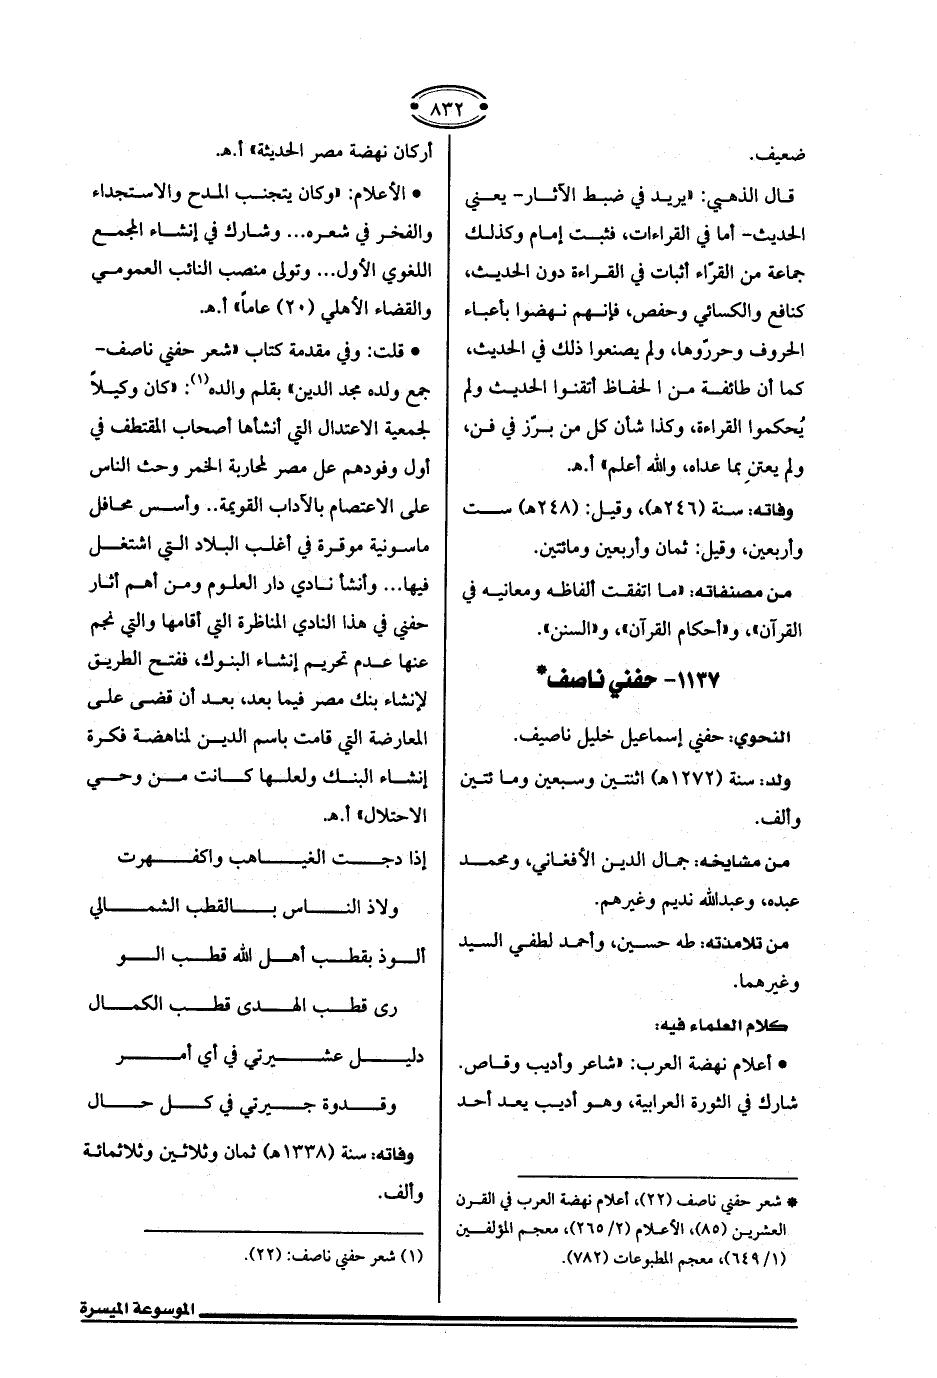 ٨٣٢
ضعيف.
قال الذهبي: «يريد في ضبط الآثار- يعني
الحديث- أما في القراءات، فثبت إمام وكذلك
جماعة من القرّاء أثبات في القراءة دون الحديث،
كنافع والكسائي وحفص، فإنهم نهضوا بأعباء
الحروف وحرروها، ولم يصنعوا ذلك في الحديث،
كما أن طائفة من الحفاظ أتقنوا الحديث ولم
يُحكموا القراءة، وكذا شأن كل من برّز في فن،
ولم يعتنِ بما عداه، والله أعلم» أ.هـ.
وفاته: سنة (٢٤٦هـ)، وقيل: (٢٤٨هـ) ست
وأربعين، وقيل: ثمان وأربعين ومائتين.
من مصنفاته: «ما اتفقت ألفاظه ومعانيه في
القرآن»، و«أحكام القرآن»، و«السنن».
١١٣٧- حفني ناصف*
النحوي: حفني إسماعيل خليل ناصيف.
ولد: سنة (١٢٧٢هـ) اثنتين وسبعين ومائتين
وألف.
من مشايخه: جمال الدين الأفغاني، ومحمد
عبده، وعبدالله نديم وغيرهم.
من تلامذته: طه حسين، وأحمد لطفي السيد
وغيرهما.
كلام العلماء فيه:
• أعلام نهضة العرب: «شاعر وأديب وقاص.
شارك في الثورة العرابية، وهو أديب يعد أحد
* شعر حفني ناصف (٢٢)، أعلام نهضة العرب في القرن
العشرين (٨٥)، الأعلام (٢/ ٢٦٥)، معجم المؤلفين
(١/ ٦٤٩)، معجم المطبوعات (٧٨٢).
أركان نهضة مصر الحديثة» أ.هـ.
• الأعلام: «وكان يتجنب المدح والاستجداء
والفخر في شعره... وشارك في إنشاء المجمع
اللغوي الأول... وتولى منصب النائب العمومي
والقضاء الأهلي (٢٠) عاماً» أ.هـ.
• قلت: وفي مقدمة كتاب «شعر حفني ناصف-
جمع ولده مجد الدين» بقلم والده(١): «كان وكيلاً
لجمعية الاعتدال التي أنشأها أصحاب المقتطف في
أول وفودهم عل مصر لمحاربة الخمر وحث الناس
على الاعتصام بالآداب القويمة.. وأسس محافل
ماسونية موقرة في أغلب البلاد التي اشتغل
فيها... وأنشأ نادي دار العلوم ومن أهم أثار
حفني في هذا النادي المناظرة التي أقامها والتي نجم
عنها عدم تحريم إنشاء البنوك، ففتح الطريق
لإنشاء بنك مصر فيما بعد، بعد أن قضى على
المعارضة التي قامت باسم الدين لمناهضة فكرة
إنشاء البنك ولعلها كانت من وحي
الاحتلال» أ.هـ.
إذا دجت الغياهب واكفهرت
ولاذ الناس بالقطب الشمالي
ألوذ بقطب أهل الله قطب الو
رى قطب الهدى قطب الكمال
دليل عشيرتي في أي أمر
وقدوة جيرتي في كل حال
وفاته: سنة (١٣٣٨هـ) ثمان وثلاثين وثلاثمائة
وألف.
(١) شعر حفني ناصف: (٢٢).
الموسوعة الميسرة